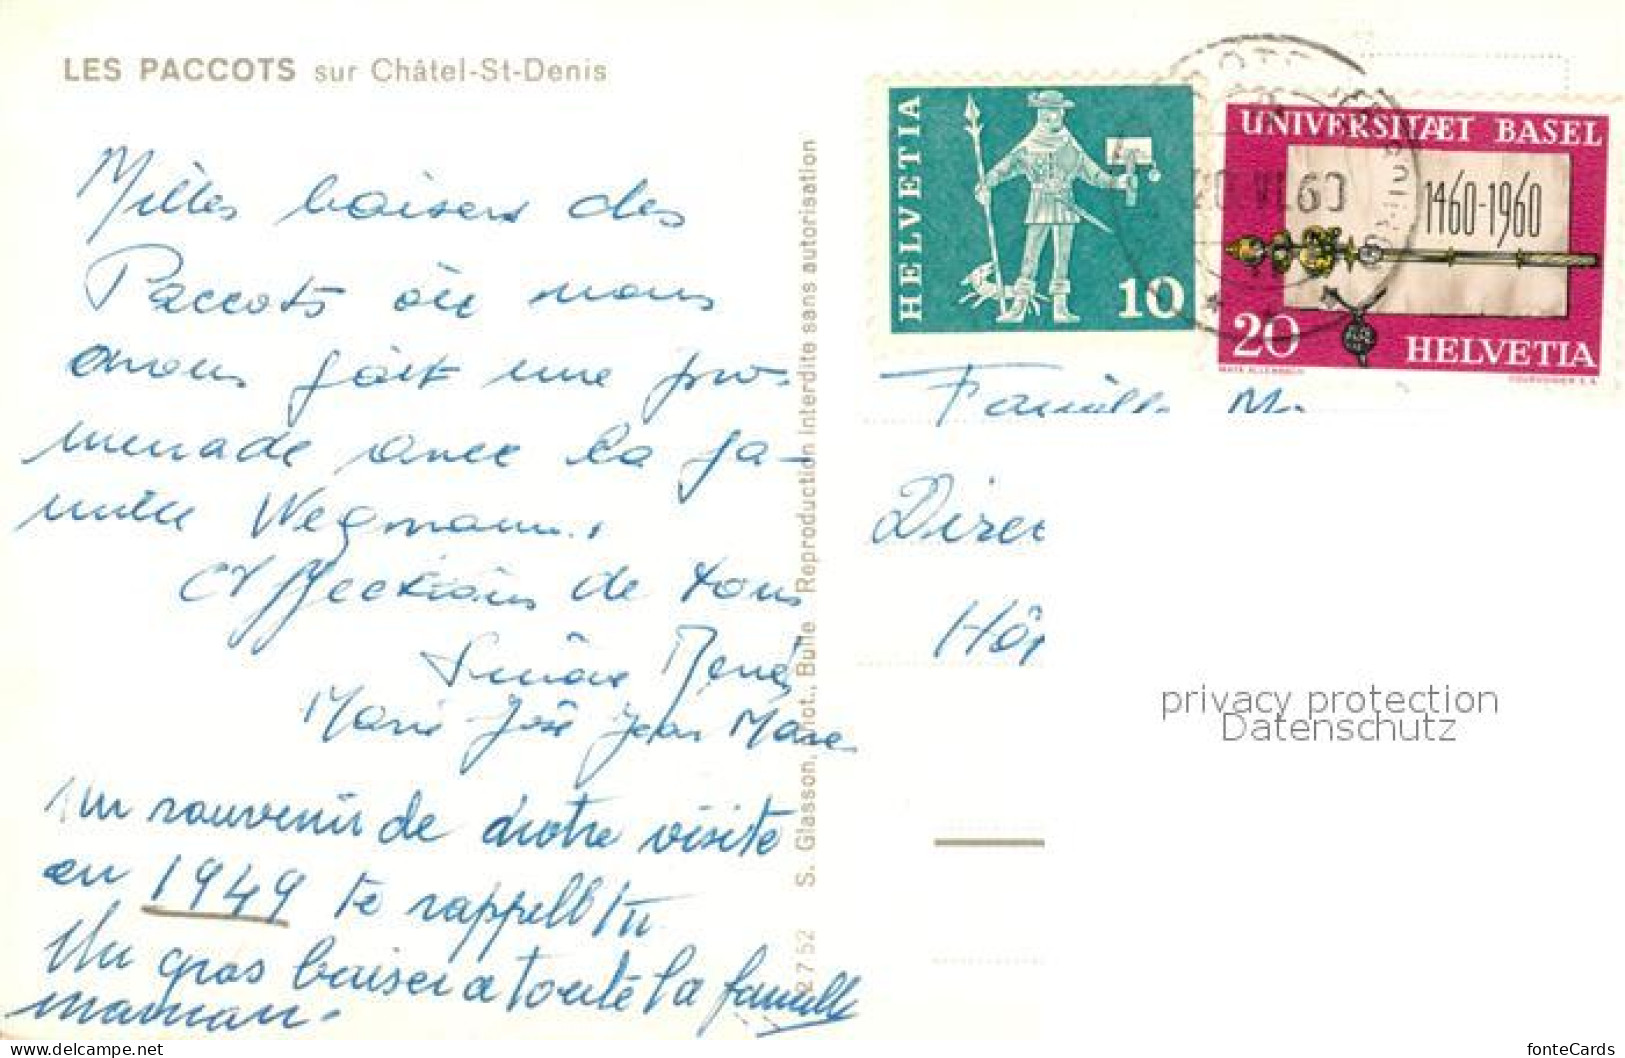 LES PACCOTS sur Châtel-St-Denis
Milles baisers des
Paccots où nous
avons fait une pro-
menade avec la fa-
mille Wegmann.
Affections de tous
René
Marie José Jean Marc
Un souvenir de notre visite
en 1949 te rappelle tu
Un gros baiser a toute la famille
maman.
22752 S. Glasson, Phot., Bulle Reproduction interdite sans autorisation
HELVETIA
10
UNIVERSITÆT BASEL
1460-1960
20
HELVETIA
COURVOISIER S.A.
VI.60
Famille
Direc
Hôp
privacy protection
Datenschutz
www.delcampe.net
fonteCards